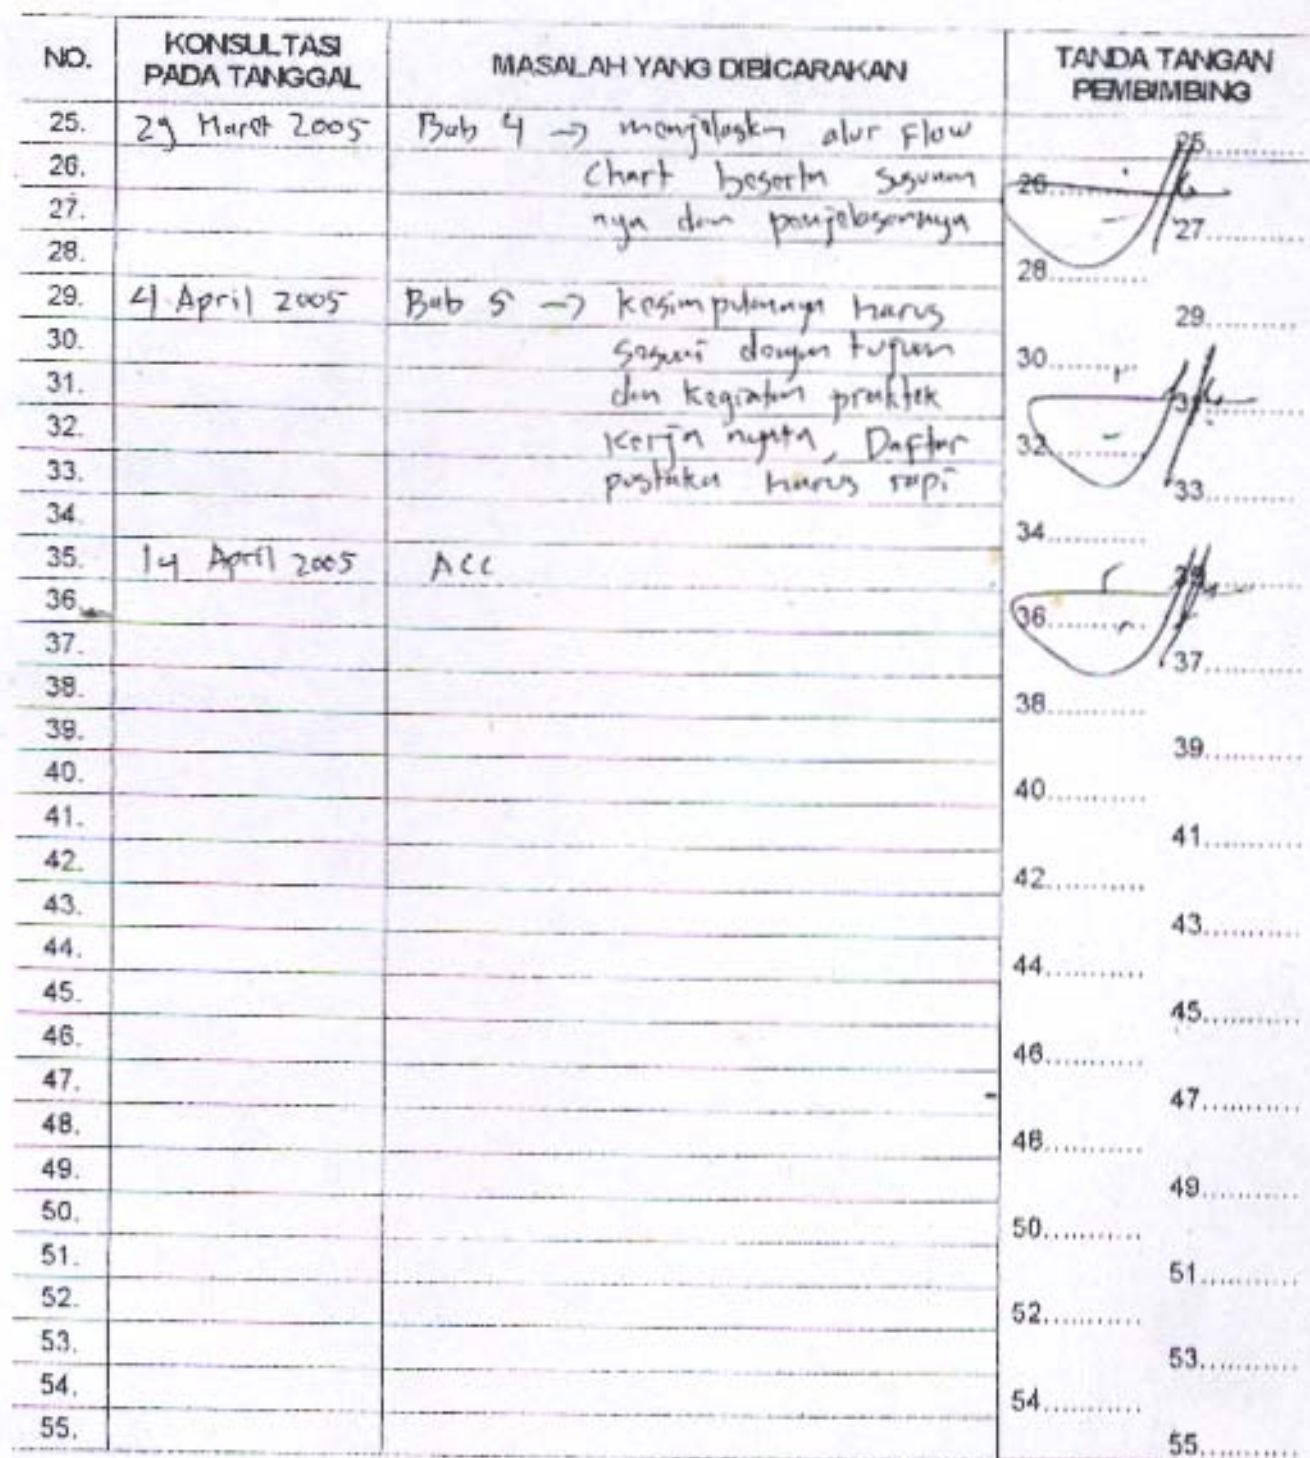 NO. KONSULTASI PADA TANGGAL MASALAH YANG DIBICARAKAN TANDA TANGAN PEMBIMBING
25. 29 Maret 2005 Bab 4 → menjelaskn alur Flow 25..........
26. Chart beserta susunan 26..........
27. nya dan penjelasannya 27..........
28. 28..........
29. 4 April 2005 Bab 5 → kesimpulannya harus 29..........
30. sesuai dengan tujuan 30..........
31. dan kegiatan praktek 31..........
32. kerja nyata, Daftar 32..........
33. pustaka harus rapi 33..........
34. 34..........
35. 14 April 2005 ACC 35..........
36. 36..........
37. 37..........
38. 38..........
39. 39..........
40. 40..........
41. 41..........
42. 42..........
43. 43..........
44. 44..........
45. 45..........
46. 46..........
47. 47..........
48. 48..........
49. 49..........
50. 50..........
51. 51..........
52. 52..........
53. 53..........
54. 54..........
55. 55..........